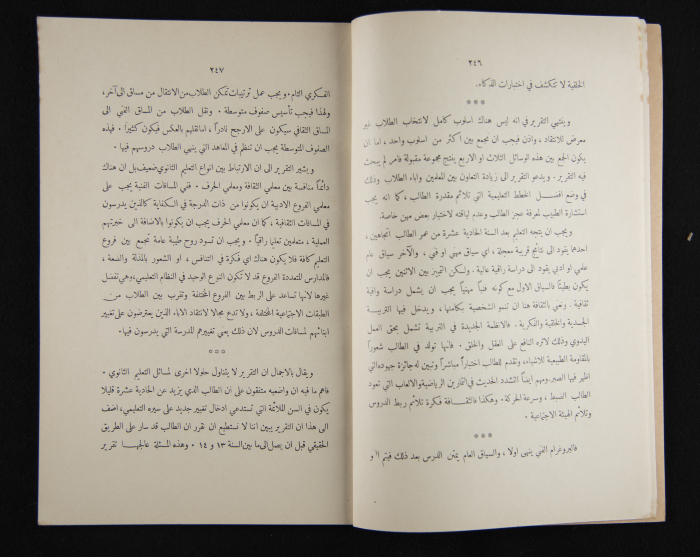 ٢٤٦
الخلقية لا تتكشف في اختبارات الذكاء.
***
وينتهي التقرير في انه ليس هناك اسلوب كامل لانتخاب الطلاب غير
معرض للانتقاد ، واذن فيجب ان نجمع بين اكثر من اسلوب واحد ، اما ان
يكون الجمع بين هذه الوسائل الثلاث او الاربع ينتج مجموعة مقبولة فأمر لم يبحث
فيه التقرير . ويدعو التقرير الى زيادة التعاون بين المعلمين واباء الطلاب وذلك
في وضع افضل الخطط التعليمية التي تلائم مقدرة الطالب ، كما انه يجب
استشارة الطبيب لمعرفة عجز الطالب وعدم لياقته لاختيار بعض مهن خاصة.
ويجب ان يتجه التعليم بعد السنة الحادية عشرة من عمر الطالب اتجاهين ،
احدهما يقود الى نتائج قريبة معجلة ، اي سياق مهني او فني ، والآخر سياق عام
علمي او ادبي يقود الى دراسة راقية عالية . ولكن التمييز بين الاثنين يجب ان
يكون بطيئاً فالسياق الاول مع كونه فنياً مهنياً يجب ان يشمل دراسة وافية
ثقافية . ونعني بالثقافة هنا ان تنمو الشخصية بكاملها ، ويدخل فيها التربيــة
الجسدية والخلقية والفكرية . فالانظمة الجديدة في التربية تشمل بحق العمل
اليدوي وذلك لاثره النافع على العقل والخلق . فانها تولد في الطالب شعوراً
بالمقاومة الطبيعية للاشياء، وتقدم للطالب اختباراً مباشراً وتبين له جائزة جهوده التي
اظهر فيها الصبر. ومهم ايضاً التشدد الحديث في التمارين الرياضية والالعاب التي تعود
الطالب الضبط ، وسرعة الحركة . وهكذا فالثقافة فكرة تلائم ربط الدروس
وتلائم الهيئة الاجتماعية .
***
فالبروغرام الفني ينهى اولا ، والسياق العام يمتن الدرس بعد ذلك فيتم
٢٤٧
الفكري التام . ويجب عمل ترتيبات تمكن الطلاب من الانتقال من مساق الى آخر،
ولهذا فيجب تأسيس صفوف متوسطة . ونقل الطلاب من المساق الفني الى
المساق الثقافي سيكون على الارجح نادراً ، اما نقلهم بالعكس فيكون كثيراً . فهذه
الصفوف المتوسطة يجب ان تنظم في المعاهد التي ينهي الطلاب دروسهم فيها .
ويشير التقرير الى ان الارتباط بين انواع التعليم الثانوي ضعيف بل ان هناك
دائماً منافسة بين معلمي الثقافة ومعلمي الحرف . ففي المساقات الفنية يجب على
معلمي الفروع الادبية ان يكونوا من ذات الدرجة في الكفاية كالذين يدرسون
في المساقات الثقافية ، كما ان معلمي الحرف يجب ان يكونوا بالاضافة الى خبرتهم
العملية ، متعلمين تعليماً راقياً . ويجب ان تسود روح طيبة عامة تجمع بين فروع
التعليم كافة فلا يكون هناك اي فكرة في التنافس ، او الشعور بالمذلة والضعة ،
فالمدارس المتعددة الفروع قد لا تكون النوع الوحيد في النظام التعليمي، وهي تفضل
غيرها لانها تساعد على الربط بين الفروع المختلفة وتقرب بين الطلاب من
الطبقات الاجتماعية المختلفة ، ولا تدع مجالا لانتقاد الاباء الذين يعترضون على تغيير
ابنائهم لمساقات الدروس لان ذلك يعني تغييرهم للمدرسة التي يدرسون فيها .
***
ويقال بالاجمال ان التقرير لا يتناول حلولا اخرى لمسائل التعليم الثانوي .
فاهم ما فيه ان واضعيه متفقون على ان الطالب الذي يزيد عن الحادية عشرة قليلا
يكون في السن الملائمة التي تستدعي ادخال تغيير جديد على سيره التعليمي ، اضف
الى هذا ان التقرير يبين اننا لا نستطيع ان نقرر ان الطالب قد سار على الطريق
الحقيقي قبل ان يصل الى ما بين السنة ١٣ و ١٤ . وهذه المسئلة عالجها تقرير